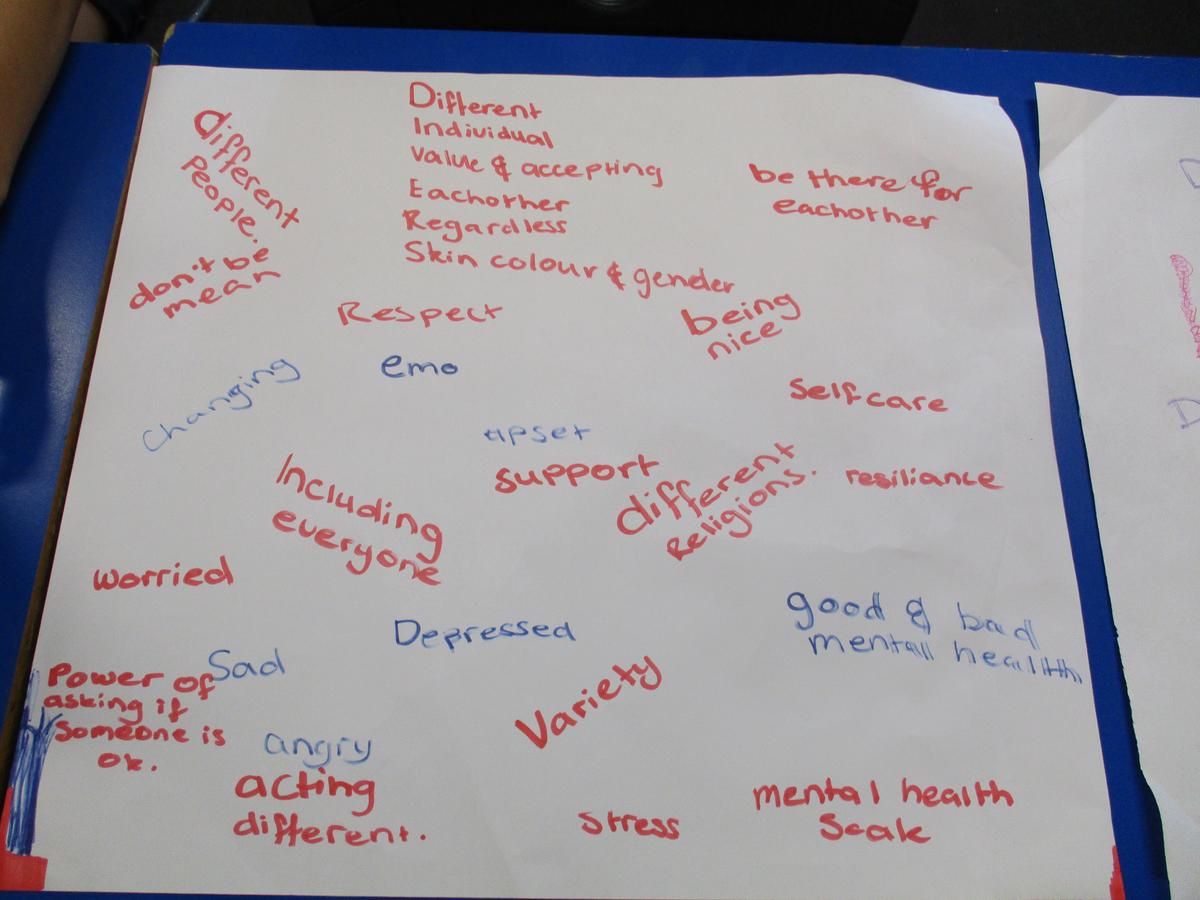 Different
Individual
Value & accepting
Eachother
Regardless
Skin colour & gender
different
People.
be there for
eachother
don't be
mean
Respect
being
nice
Changing
emo
Selfcare
upset
support
different
Religions.
resiliance
Including
everyone
worried
Depressed
good & bad
mentall healtth
Sad
Power of
asking if
Someone is
ok.
Variety
angry
acting
different.
Stress
mental health
Scale